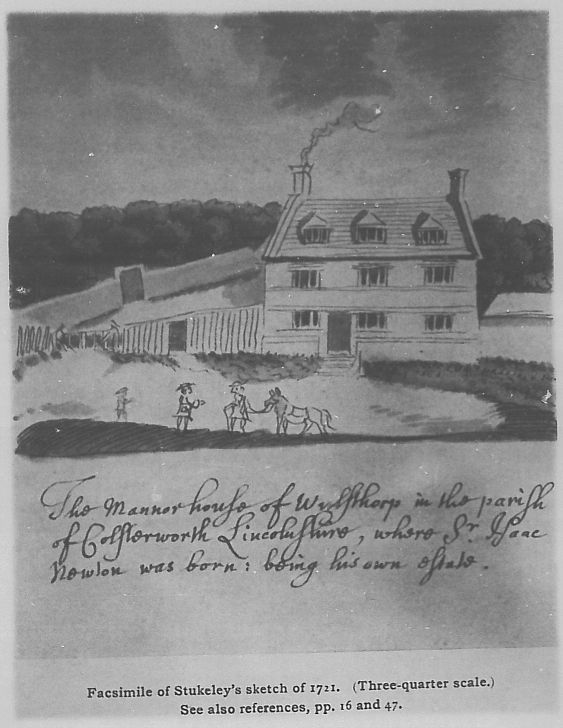 The Mannor house of Wulsthorp in the parish
of Colsterworth Lincolnshire, where Sr. Isaac
Newton was born: being his own estate.
Facsimile of Stukeley's sketch of 1721. (Three-quarter scale.)
See also references, pp. 16 and 47.